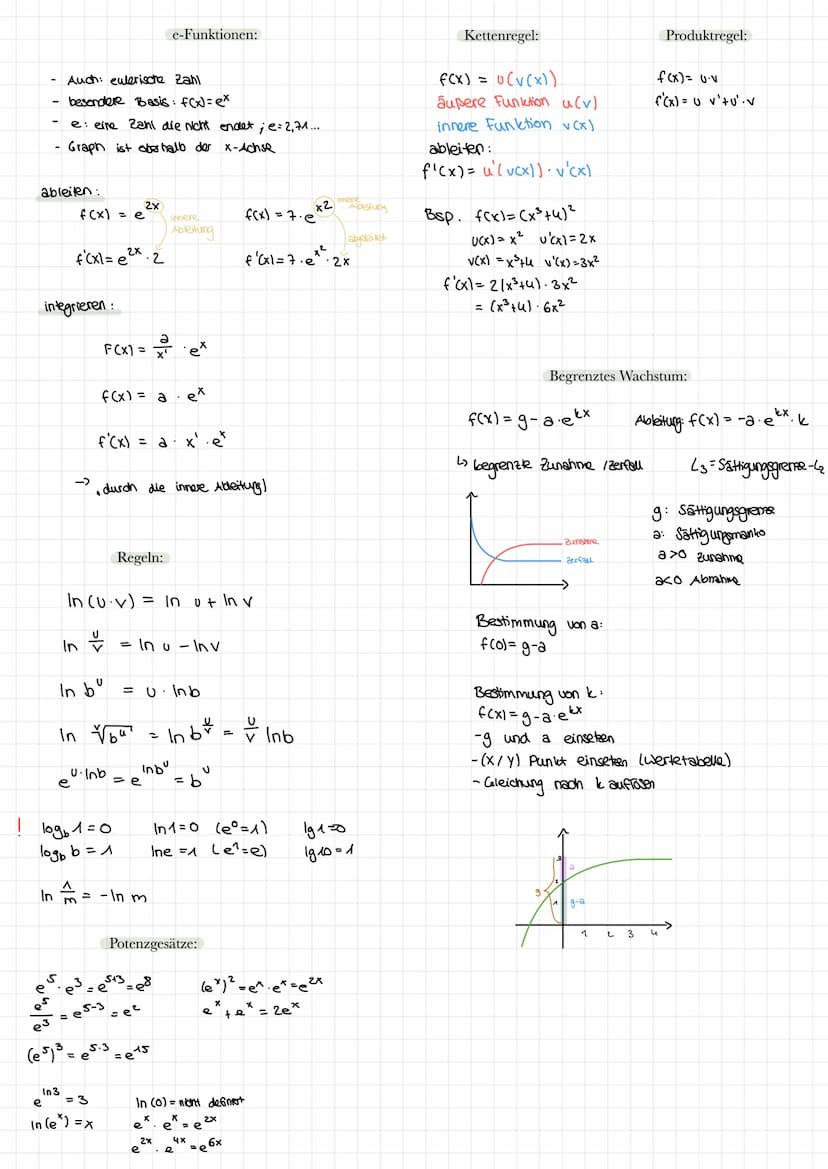 e-Funktionen:
- Auch: eulerische Zahl
- besondere Basis: f(x)=eˣ
- e: eine Zahl die nicht endet ; e=2,71...
- Graph ist oberhalb der x-Achse
ableiten:
f(x) = e²ˣ
innere Ableitung
f'(x)= e²ˣ · 2
f(x) = 7 · e^x2
innere Ableitung
abgeleitet
f'(x)= 7 · e^x² · 2x
integrieren:
F(x) = a/x' · eˣ
f(x) = a · eˣ
f'(x) = a · x' · eˣ
-> , durch die innere Ableitung)
Regeln:
ln(u·v) = ln u + ln v
ln u/v = ln u - ln v
ln bᵘ = u · ln b
ln ᵛ√bᵘ = ln b^(u/v) = u/v ln b
e^(u·lnb) = e^(lnbᵘ) = bᵘ
! log_b 1 = 0 ln 1 = 0 (e⁰=1) lg 1=0
log_b b = 1 ln e = 1 (e¹=e) lg 10 = 1
ln 1/m = - ln m
Potenzgesätze:
e⁵ · e³ = e⁵⁺³ = e⁸ (eˣ)² = eˣ · eˣ = e²ˣ
e⁵/e³ = e⁵⁻³ = e² eˣ + eˣ = 2eˣ
(e⁵)³ = e^(5·3) = e¹⁵
e^(ln3) = 3 ln(0) = nicht definiert
ln(eˣ) = x eˣ · eˣ = e²ˣ
e²ˣ · e⁴ˣ = e⁶ˣ
Kettenregel:
f(x) = u(v(x))
äußere Funktion u(v)
innere Funktion v(x)
ableiten:
f'(x) = u'(v(x)) · v'(x)
Bsp. f(x)= (x³+4)²
u(x) = x² u'(x) = 2x
v(x) = x³+4 v'(x) = 3x²
f'(x) = 2(x³+4) · 3x²
= (x³+4) · 6x²
Produktregel:
f(x)= u·v
f'(x) = u v'+u'·v
Begrenztes Wachstum:
f(x) = g - a · e^kx Ableitung: f(x) = -a · e^kx · k
↳ begrenzte Zunahme / Zerfall
L₃ = Sättigungsgrenze - L₂
Zunahme
Zerfall
g: Sättigungsgrenze
a: Sättigungsmanko
a>0 Zunahme
a<0 Abnahme
Bestimmung von a:
f(0) = g-a
Bestimmung von k:
f(x) = g - a · e^kx
- g und a einsetzen
- (x/y) Punkt einsetzen (Wertetabelle)
- Gleichung nach k auflösen
3
a
2
g
1
g-a
1 2 3 4